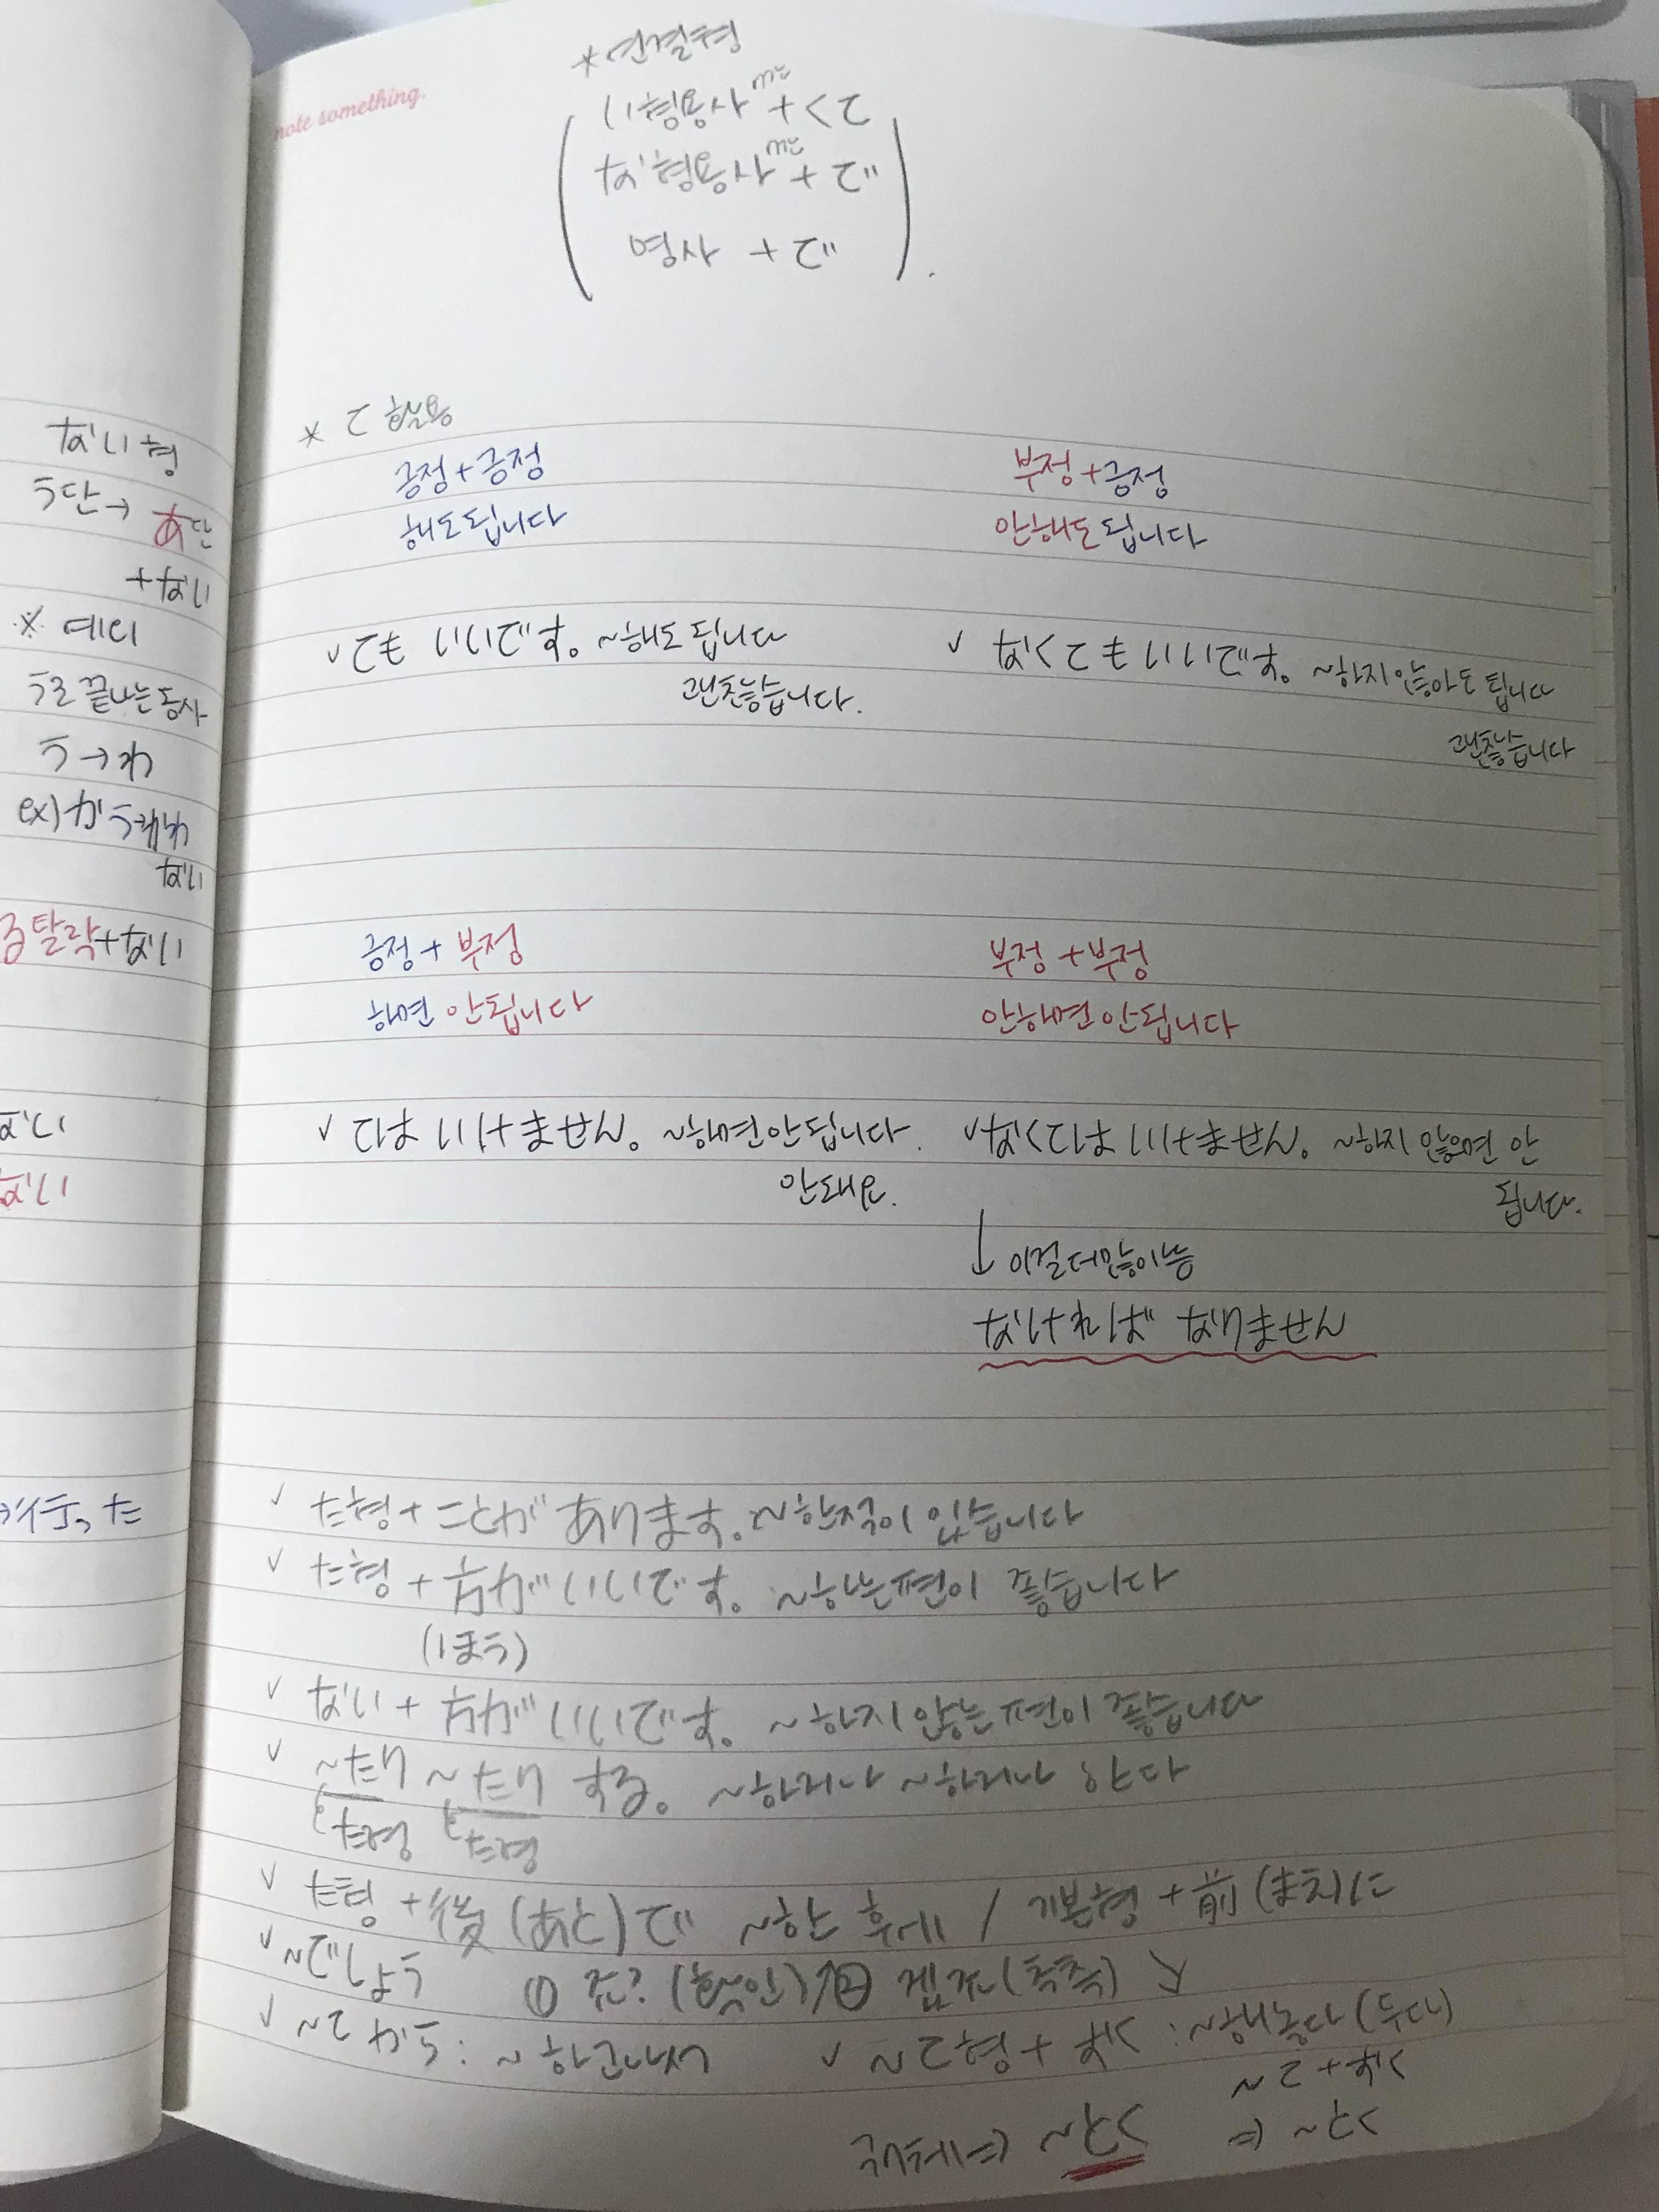 ない형
う단→あ단
+ない
※ 예외
う로 끝나는 동사
う→わ
ex) かう
ない
る탈락+ない
ない
ない
→行った
note something.
*연결형
い형용사 + くて
な형용사 + で
명사 + で
* て 활용
긍정+긍정
해도됩니다
부정+긍정
안해도 됩니다
✓ ても いいです。~해도 됩니다
괜찮습니다.
✓ なくても いいです。~하지 않아도 됩니다
괜찮습니다
긍정+부정
하면 안됩니다
부정+부정
안하면 안됩니다
✓ ては いけません。~하면 안됩니다.
안돼요.
✓ なくては いけません。~하지 않으면 안
됩니다.
↓ 이걸 더 많이씀
なければ なりません
✓ た형+ことが あります。~한적이 있습니다
✓ た형+方が いいです。~하는편이 좋습니다
(ほう)
✓ ない+方が いいです。~하지 않는편이 좋습니다
✓ ~たり ~たり する。~하거나 ~하거나 한다
た형 た형
✓ た형+後(あと)で ~한 후에 / 기본형+前(まえ)に
✓ ~でしょう ① 죠?(확인)↗ ② 겠죠(추측)↘
✓ ~てから : ~하고나서 ✓ ~て형+おく : ~해놓다(두다)
~て+おく
⇒ ~とく
⇒ ~とく